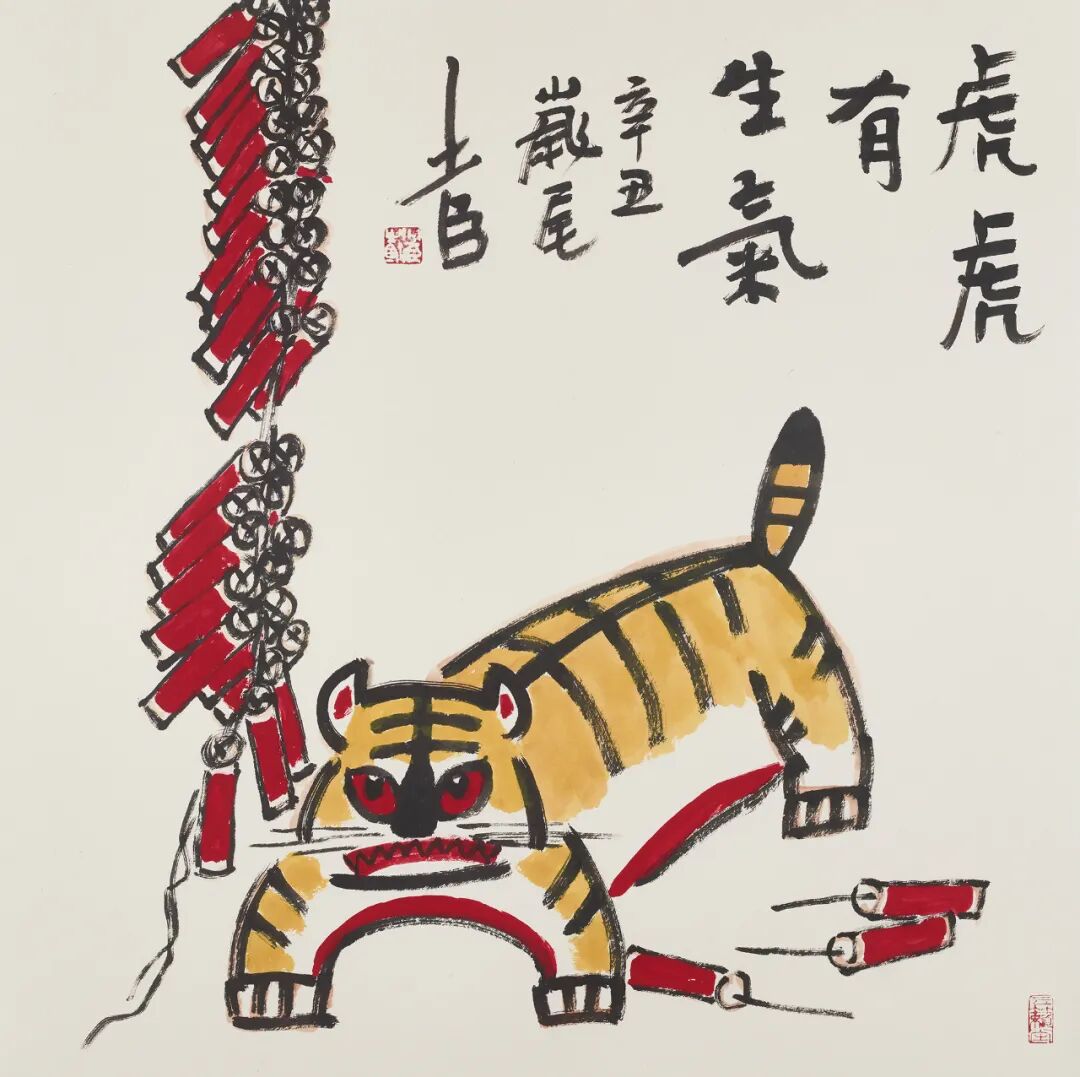 虎虎
有
生氣
辛丑
歲尾